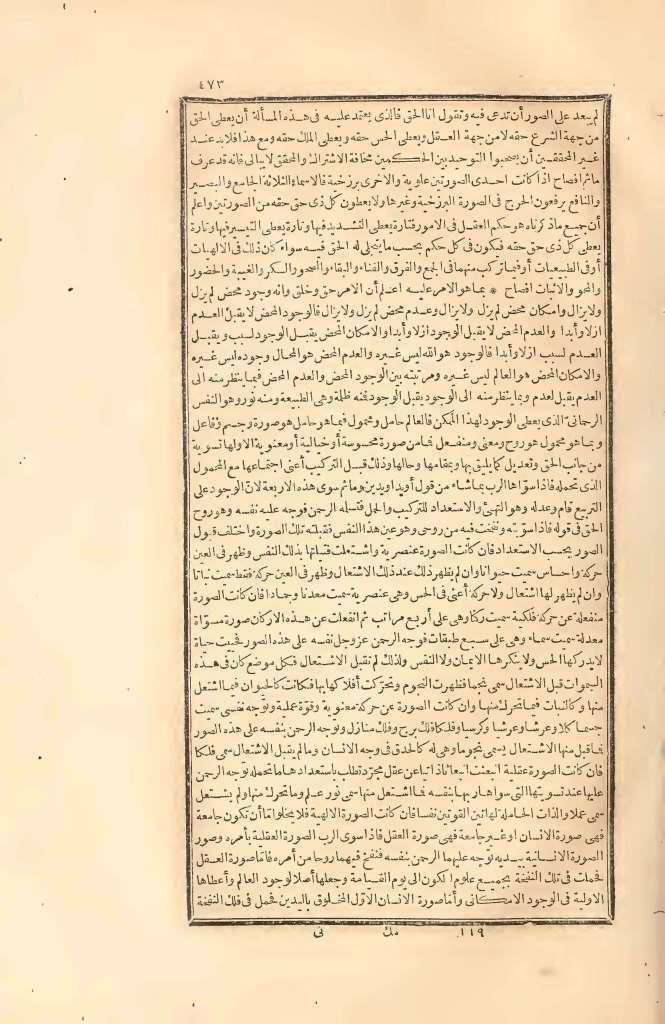 ٤٧٣
لم يبعد على الصور أن تدعى فيه وتقول انا الحق فالذى يعتمد عليه فى هذه المسألة أن يعطى الحق
من جهة الشرع حقه لا من جهة العقل ويعطى الحس حقه ويعطى الملك حقه ومع هذا فلابد عند
غير المحققين أن يصحبوا التوحيد بين الحكمين مخافة الاشتراك والمحقق لا يبالى فانه قد عرف
ما ثم افصاح اذا كانت احدى الصورتين علوية والاخرى برزخية فالاسماء الثلاثة الجامع والبصير
والنافع يرفعون الحرج فى الصورة البرزخية وغيرها ولا يعطون كل ذى حق حقه من الصورتين واعلم
أن جميع ما ذكرناه هو حكم العقل فى الامور فتارة يعطى التشديد فيها وتارة يعطى التيسير فيها وتارة
يعطى كل ذى حق حقه فيكون فى كل حكم بحسب ما يتجلى له الحق فيه سواء كان ذلك فى الالهيات
أو فى الطبيعيات أو فيما تركب منهما فى الجمع والفرق والفناء والبقاء والصحو والسكر والغيبة والحضور
والمحو والاثبات افصاح * بما هو الامر عليه اعلم أن الامر حق وخلق وانه وجود محض لم يزل
ولا يزال وامكان محض لم يزل ولا يزال وعدم محض لم يزل ولا يزال فالوجود المحض لا يقبل العدم
ازلا وأبدا والعدم المحض لا يقبل الوجود ازلا وأبدا والامكان المحض يقبل الوجود لسبب ويقبل
العدم لسبب ازلا وأبدا فالوجود هو الله ليس غيره والعدم المحض هو المحال وجوده ليس غيره
والامكان المحض هو العالم ليس غيره ومرتبته بين الوجود المحض والعدم المحض فبما ينظر منه الى
العدم يقبل لعدم وبما ينظر منه الى الوجود يقبل الوجود فمنه ظلمة وهى الطبيعة ومنه نور وهو النفس
الرحمانى الذى يعطى الوجود لهذا الممكن فالعالم حامل ومحمول فبما هو حامل هو صورة وجسم وفاعل
وبما هو محمول هو روح ومعنى ومنفعل فما من صورة محسوسة أو خيالية أو معنوية الا ولها تسوية
من جانب الحق وتعديل كما يليق بها وبمقامها وحالها وذلك قبل التركيب أعنى اجتماعها مع المحمول
الذى تحمله فاذا سوّاها الرب بما شاء من قول أو يد أو يدين وما ثم سوى هذه الاربعة لان الوجود على
التربيع قام وعدله وهو التهيئ والاستعداد للتركيب والحمل فتسلمه الرحمن فوجه عليه نفسه وهو روح
الحق فى قوله فاذا سويته ونفخت فيه من روحى وهو عين هذا النفس فقبلته تلك الصورة واختلف قبول
الصور بحسب الاستعداد فان كانت الصورة عنصرية واشتعلت فتيلتها بذلك النفس وظهر فى العين
حركة واحساس سميت حيوانا وان لم يظهر ذلك عند ذلك الاشتعال وظهر فى العين حركة فقط سميت نباتا
وان لم يظهر لها اشتعال ولا حركة أعنى فى الحس وهى عنصرية سميت معدنا وجمادا فان كانت الصورة
منفعلة عن حركة فلكية سميت ركنا وهى على أربع مراتب ثم انفعلت عن هذه الاركان صورة مسوّاة
معدلة سميت سماء وهى على سبع طبقات فوجه الرحمن عز وجل نفسه على هذه الصور فحيت حياة
لا يدركها الحس ولا ينكرها الايمان ولا النفس ولذلك لم تقبل الاشتعال فكل موضع كان فى هذه
السموات قبل الاشتعال سمى نجما فظهرت النجوم وتحركت أفلاكها بها فكانت كالحيوان فيما اشتعل
منها وكالنبات فيما تحرك منها وان كانت الصورة عن حركة معنوية وقوة عملية وتوجه نفسى سميت
جسما كلا وعرشا وعرشا وكرسيا وفلكا فلك بروج وفلك منازل وتوجه الرحمن بنفسه على هذه الصور
فما قبل منها الاشتعال يسمى نجوما وهى له كالحدق فى وجه الانسان وما لم يقبل الاشتعال سمى فلكا
فان كانت الصورة عقلية انبعثت انبعاثا ذاتيا عن عقل مجرد تطلب باستعدادها ما تحمله توجه الرحمن
عليها عند تسويتها التى سواها ربها بنفسه فما اشتعل منها سمى نور علم وما تحرك منها ولم يشتعل
سمى عملا والذات الحاملة لهاتين القوتين نفسا فان كانت الصورة الالهية فلا يخلو اما أن تكون جامعة
فهى صورة الانسان او غير جامعة فهى صورة العقل فاذا سوى الرب الصورة العقلية بأمره وصور
الصورة الانسانية بيديه توجه عليهما الرحمن بنفسه فنفخ فيهما روحا من أمره فاما صورة العقل
فحملت فى تلك النفخة بجميع علوم الكون الى يوم القيامة وجعلها أصلا لوجود العالم وأعطاها
الاولية فى الوجود الامكانى وأما صورة الانسان الاول المخلوق باليدين فحمل فى تلك النفخة
١١٩ مك فى